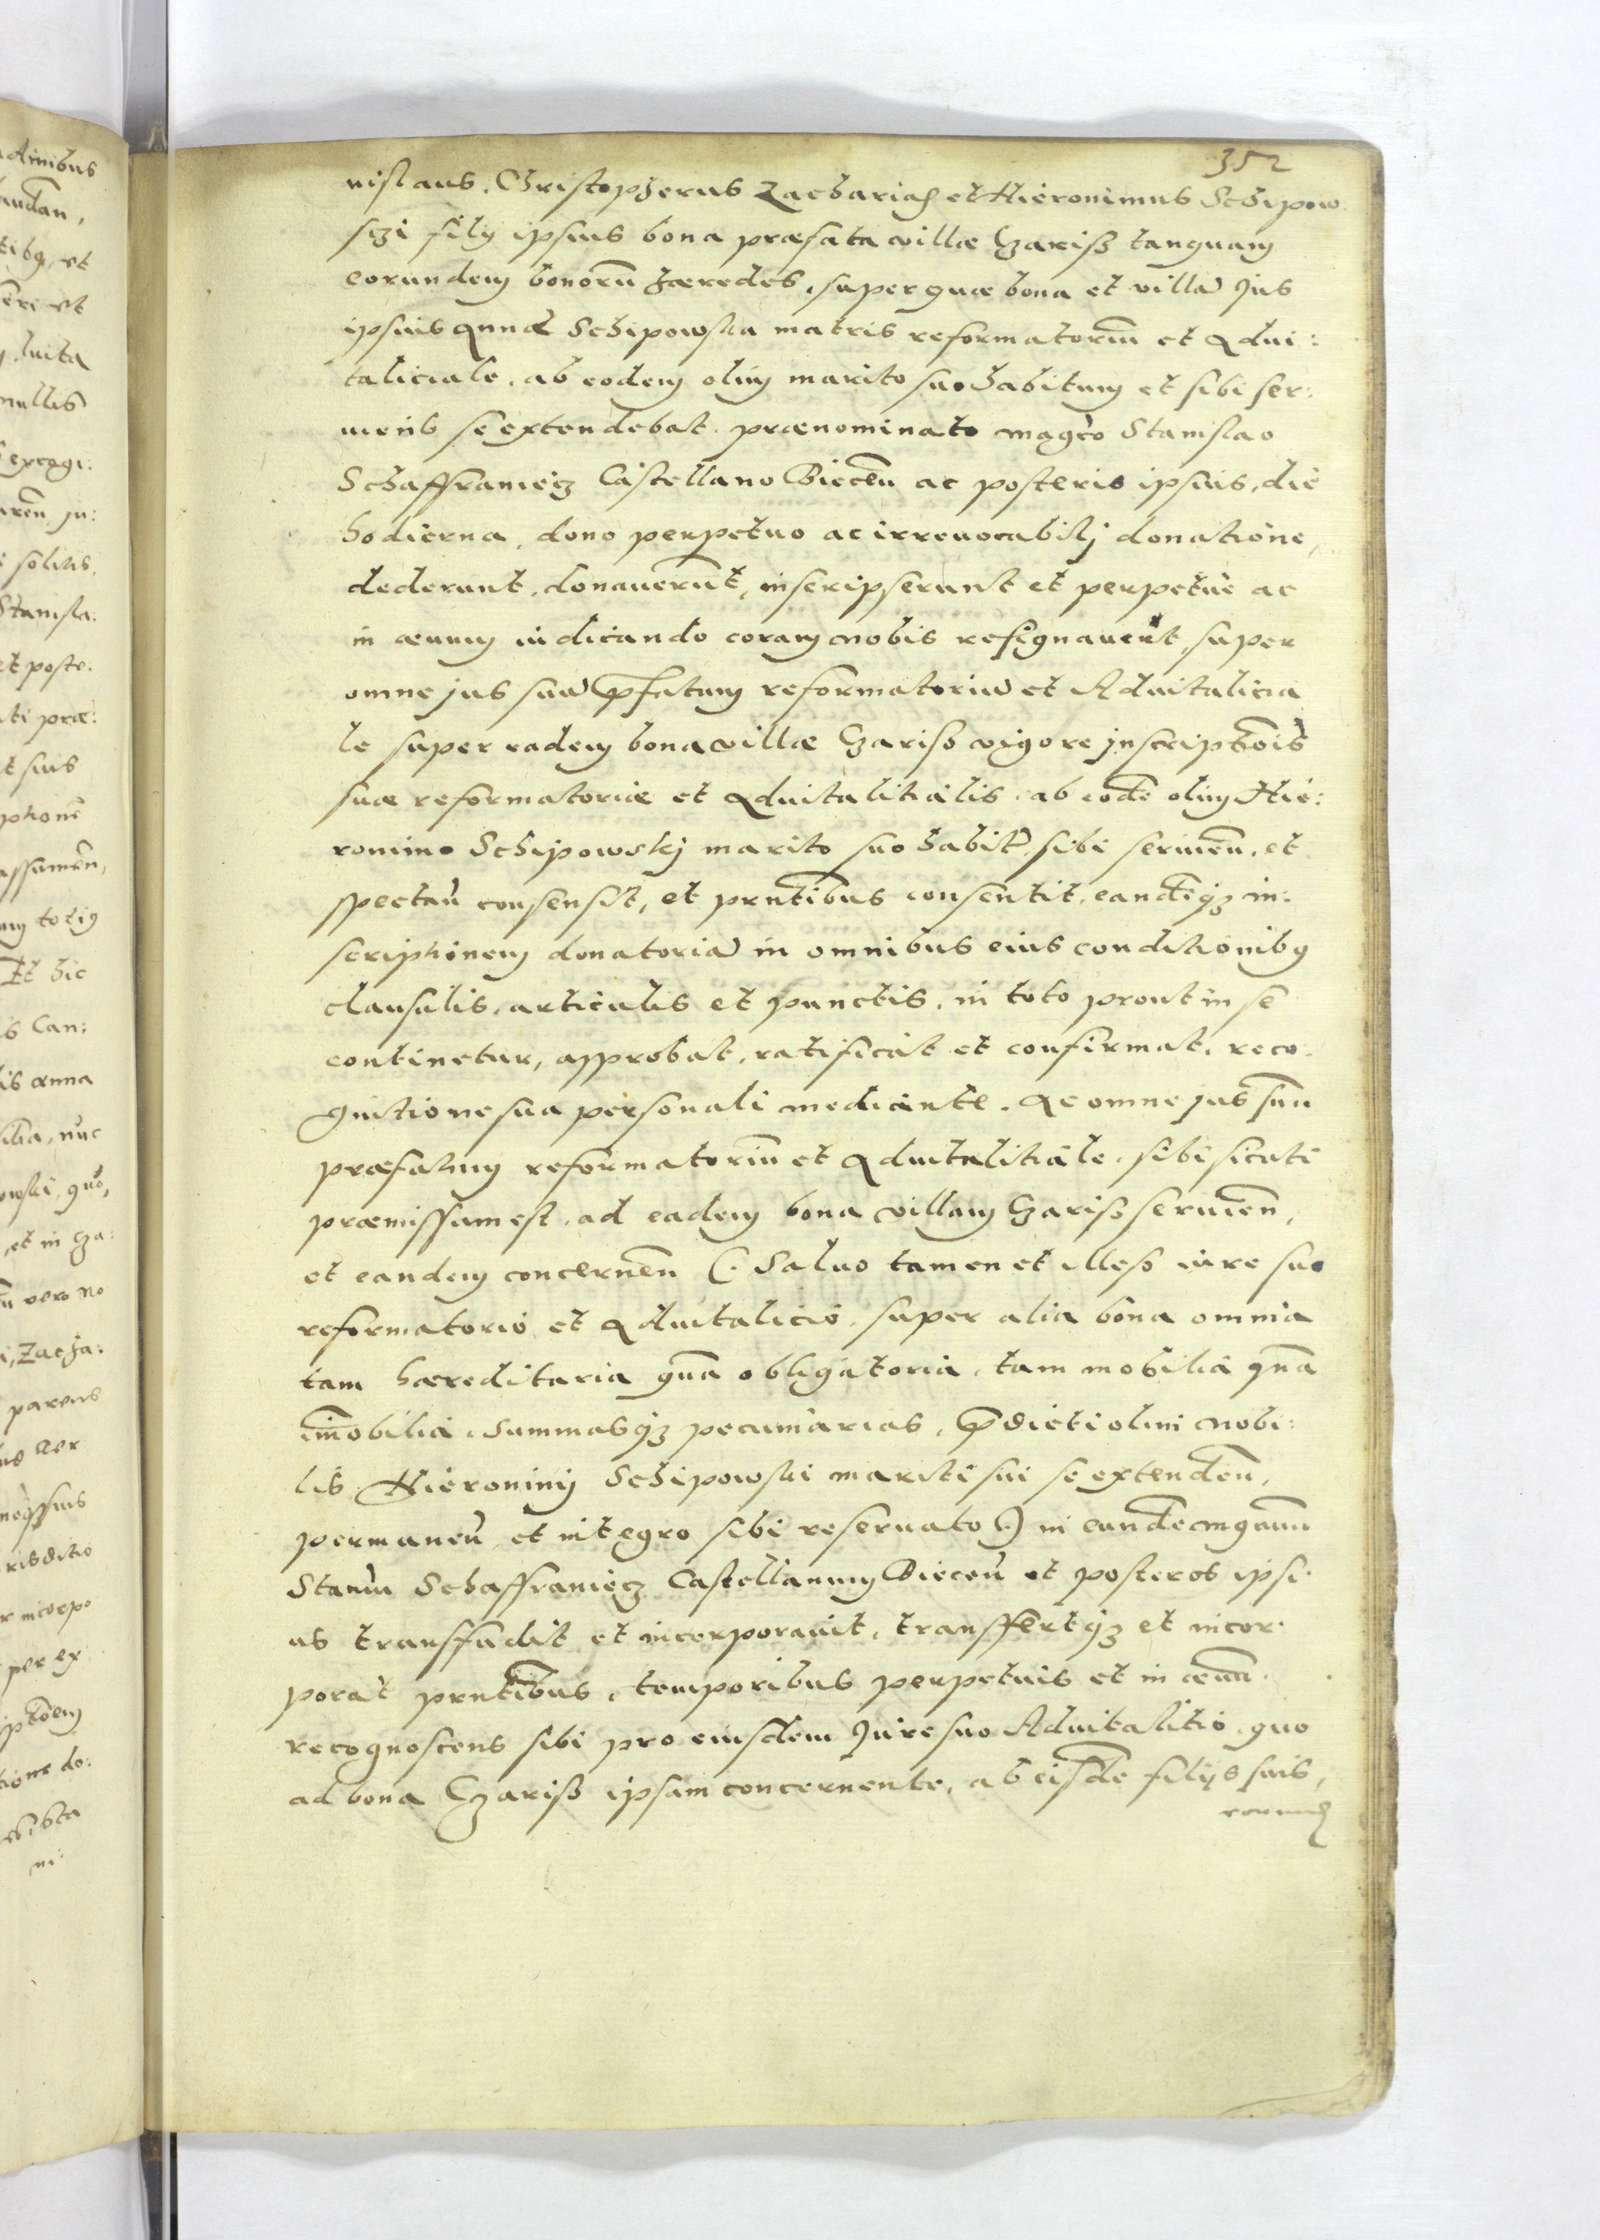 352
nislaus, Christopherus Zacharias et Hieronimus Schipow
sczi filij ipsius bona præfata villæ Czarisz tanquam
eorundem bonorũ hæredes, super quæ bona et villã Jus
ipsius Annæ Schipowska matris reformatoriũ et Advi:
taliciale, ab eodem olim marito suo habitum et sibi ser:
uiens se extendebat, prænominato magco Stanislao
Schaffraniecz Castellano Biecen̄ ac posteris ipsius, die
hodierna, dono perpetuo ac irreuocabilj donatione,
dederunt, donauerũt, inscripserunt et perpetue ac
in æuum iudicando coram nobis resignauerũt, super
omne jus suũ pfatum reformatoriũ et Aduitalicia
le super eadem bona villæ Czarisz vigore jnscriptõis
suæ reformatoriæ et Aduitalitialis, ab eodẽ olim Hie:
ronimo Schipowskj marito suo habit, sibi seruien̄, et
spectan̄ consensit, et prntibus consentit, eandẽqz in:
scriptionem donatoriã in omnibus eius conditionibq
clausulis, articulis et punctis, in toto prout in se
continetur, approbat, ratificat et confirmat, reco:
gnitione sua personali mediante. Ac omne jus suũ
præfatum reformatoriũ et Aduitalitiale, sibi sicuti
præmissum est, ad eadem bona villam Czarisz seruien̄,
et eandem concernen̄ (. Saluo tamen et illeso iure suo
reformatorio et Aduitalicio, super alia bona omnia
tam hæreditaria quã obligatoria, tam mobilia quã
im̃obilia, summasqz pecuniarias, pdicti olim Nobi:
lis Hieronimj Schipowski mariti sui se extenden̄,
permanen̄ et integro sibi reseruato .) in eundẽ mgcum
Stanũ Schaffraniecz Castellanum Biecen̄ et posteros ipsi
us transfudit et incorporauit, transffertqz et incor:
porat prntibus, temporibus perpetuis et in æuũ.
recognoscens sibi pro eiusdem Jure suo Aduitalitio, quo
ad bona Czarisz ipsam concernente, ab eisdẽ filijs suis,